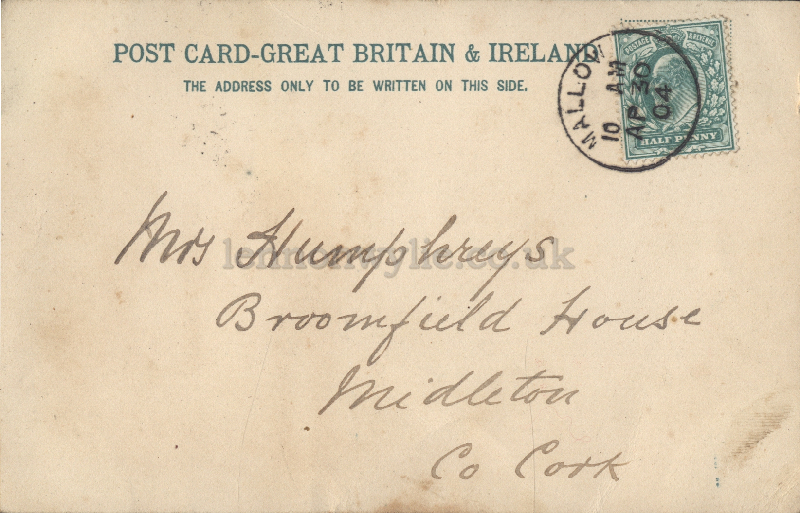 POST CARD-GREAT BRITAIN & IRELAND
THE ADDRESS ONLY TO BE WRITTEN ON THIS SIDE.
POSTAGE REVENUE
HALF PENNY
MALLOW
10 AM
AP 30
04
Mrs Humphreys
Broomfield House
Midleton
Co Cork